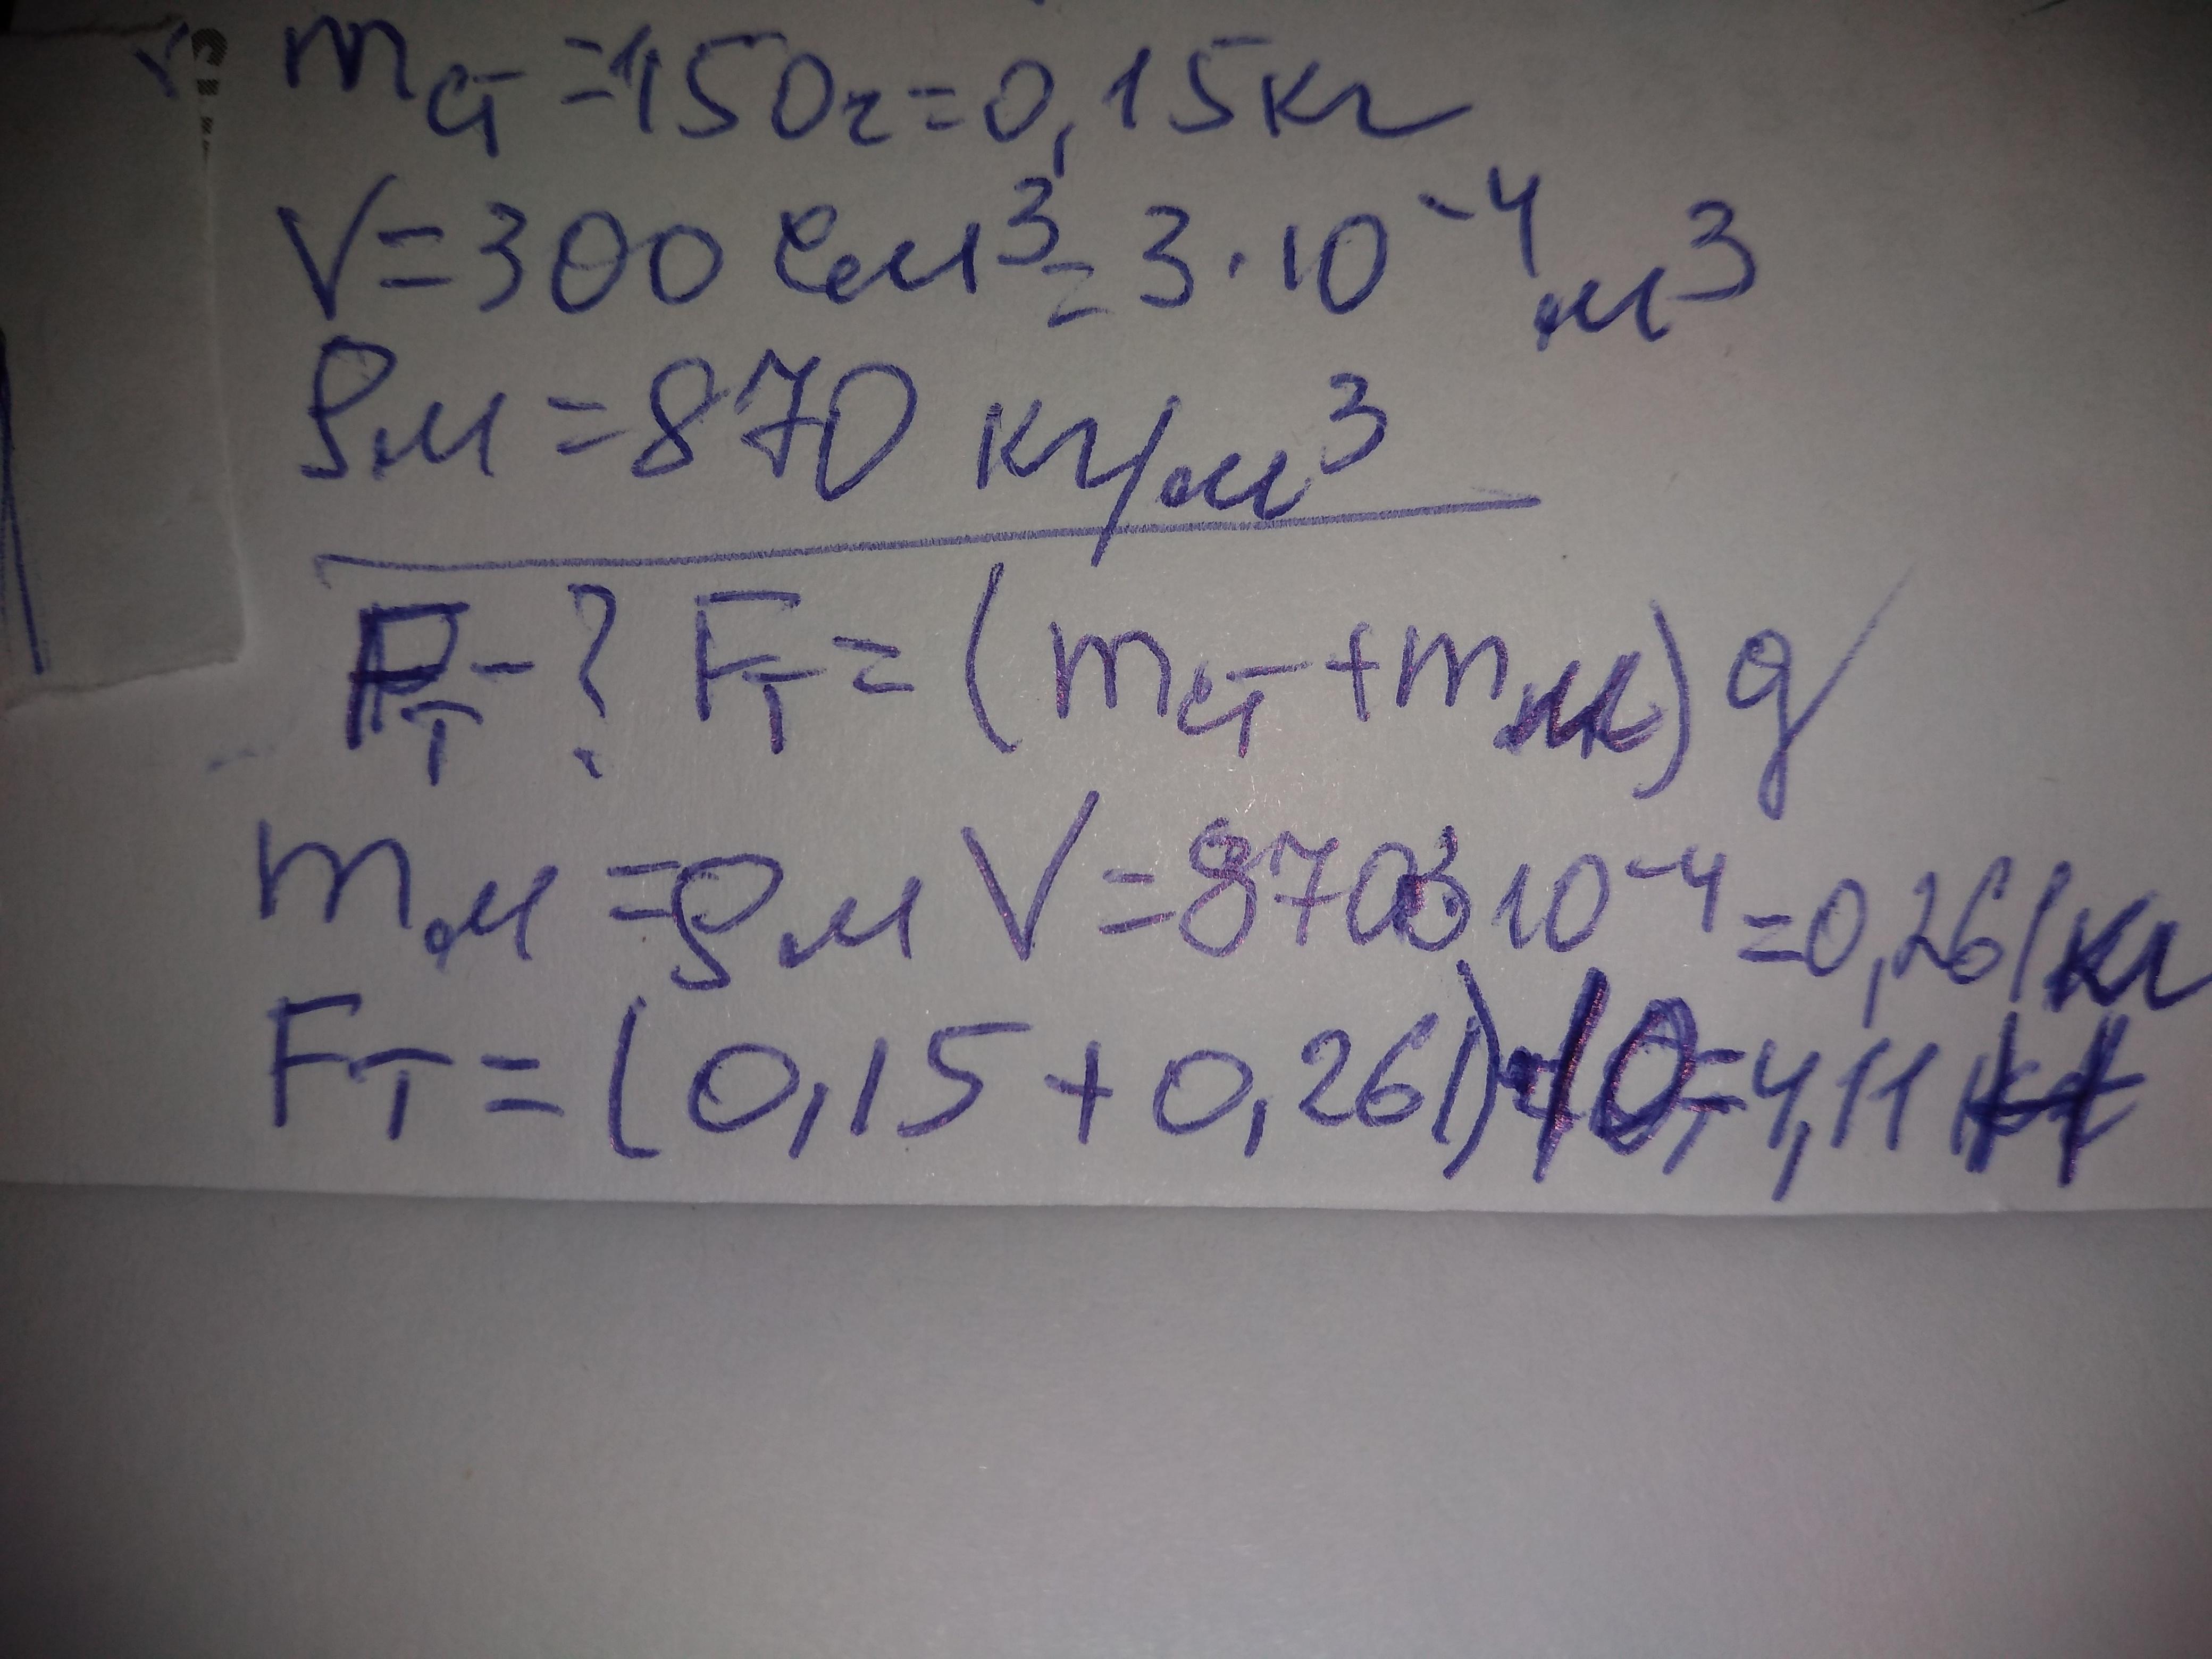 m ст = 150г = 0,15 кг
V = 300 см³ = 3·10⁻⁴ м³
ρм = 870 кг/м³
Fт - ? Fт = (mст + mм) g
mм = ρм V = 870·3·10⁻⁴ = 0,261 кг
Fт = (0,15 + 0,261)·10 = 4,11